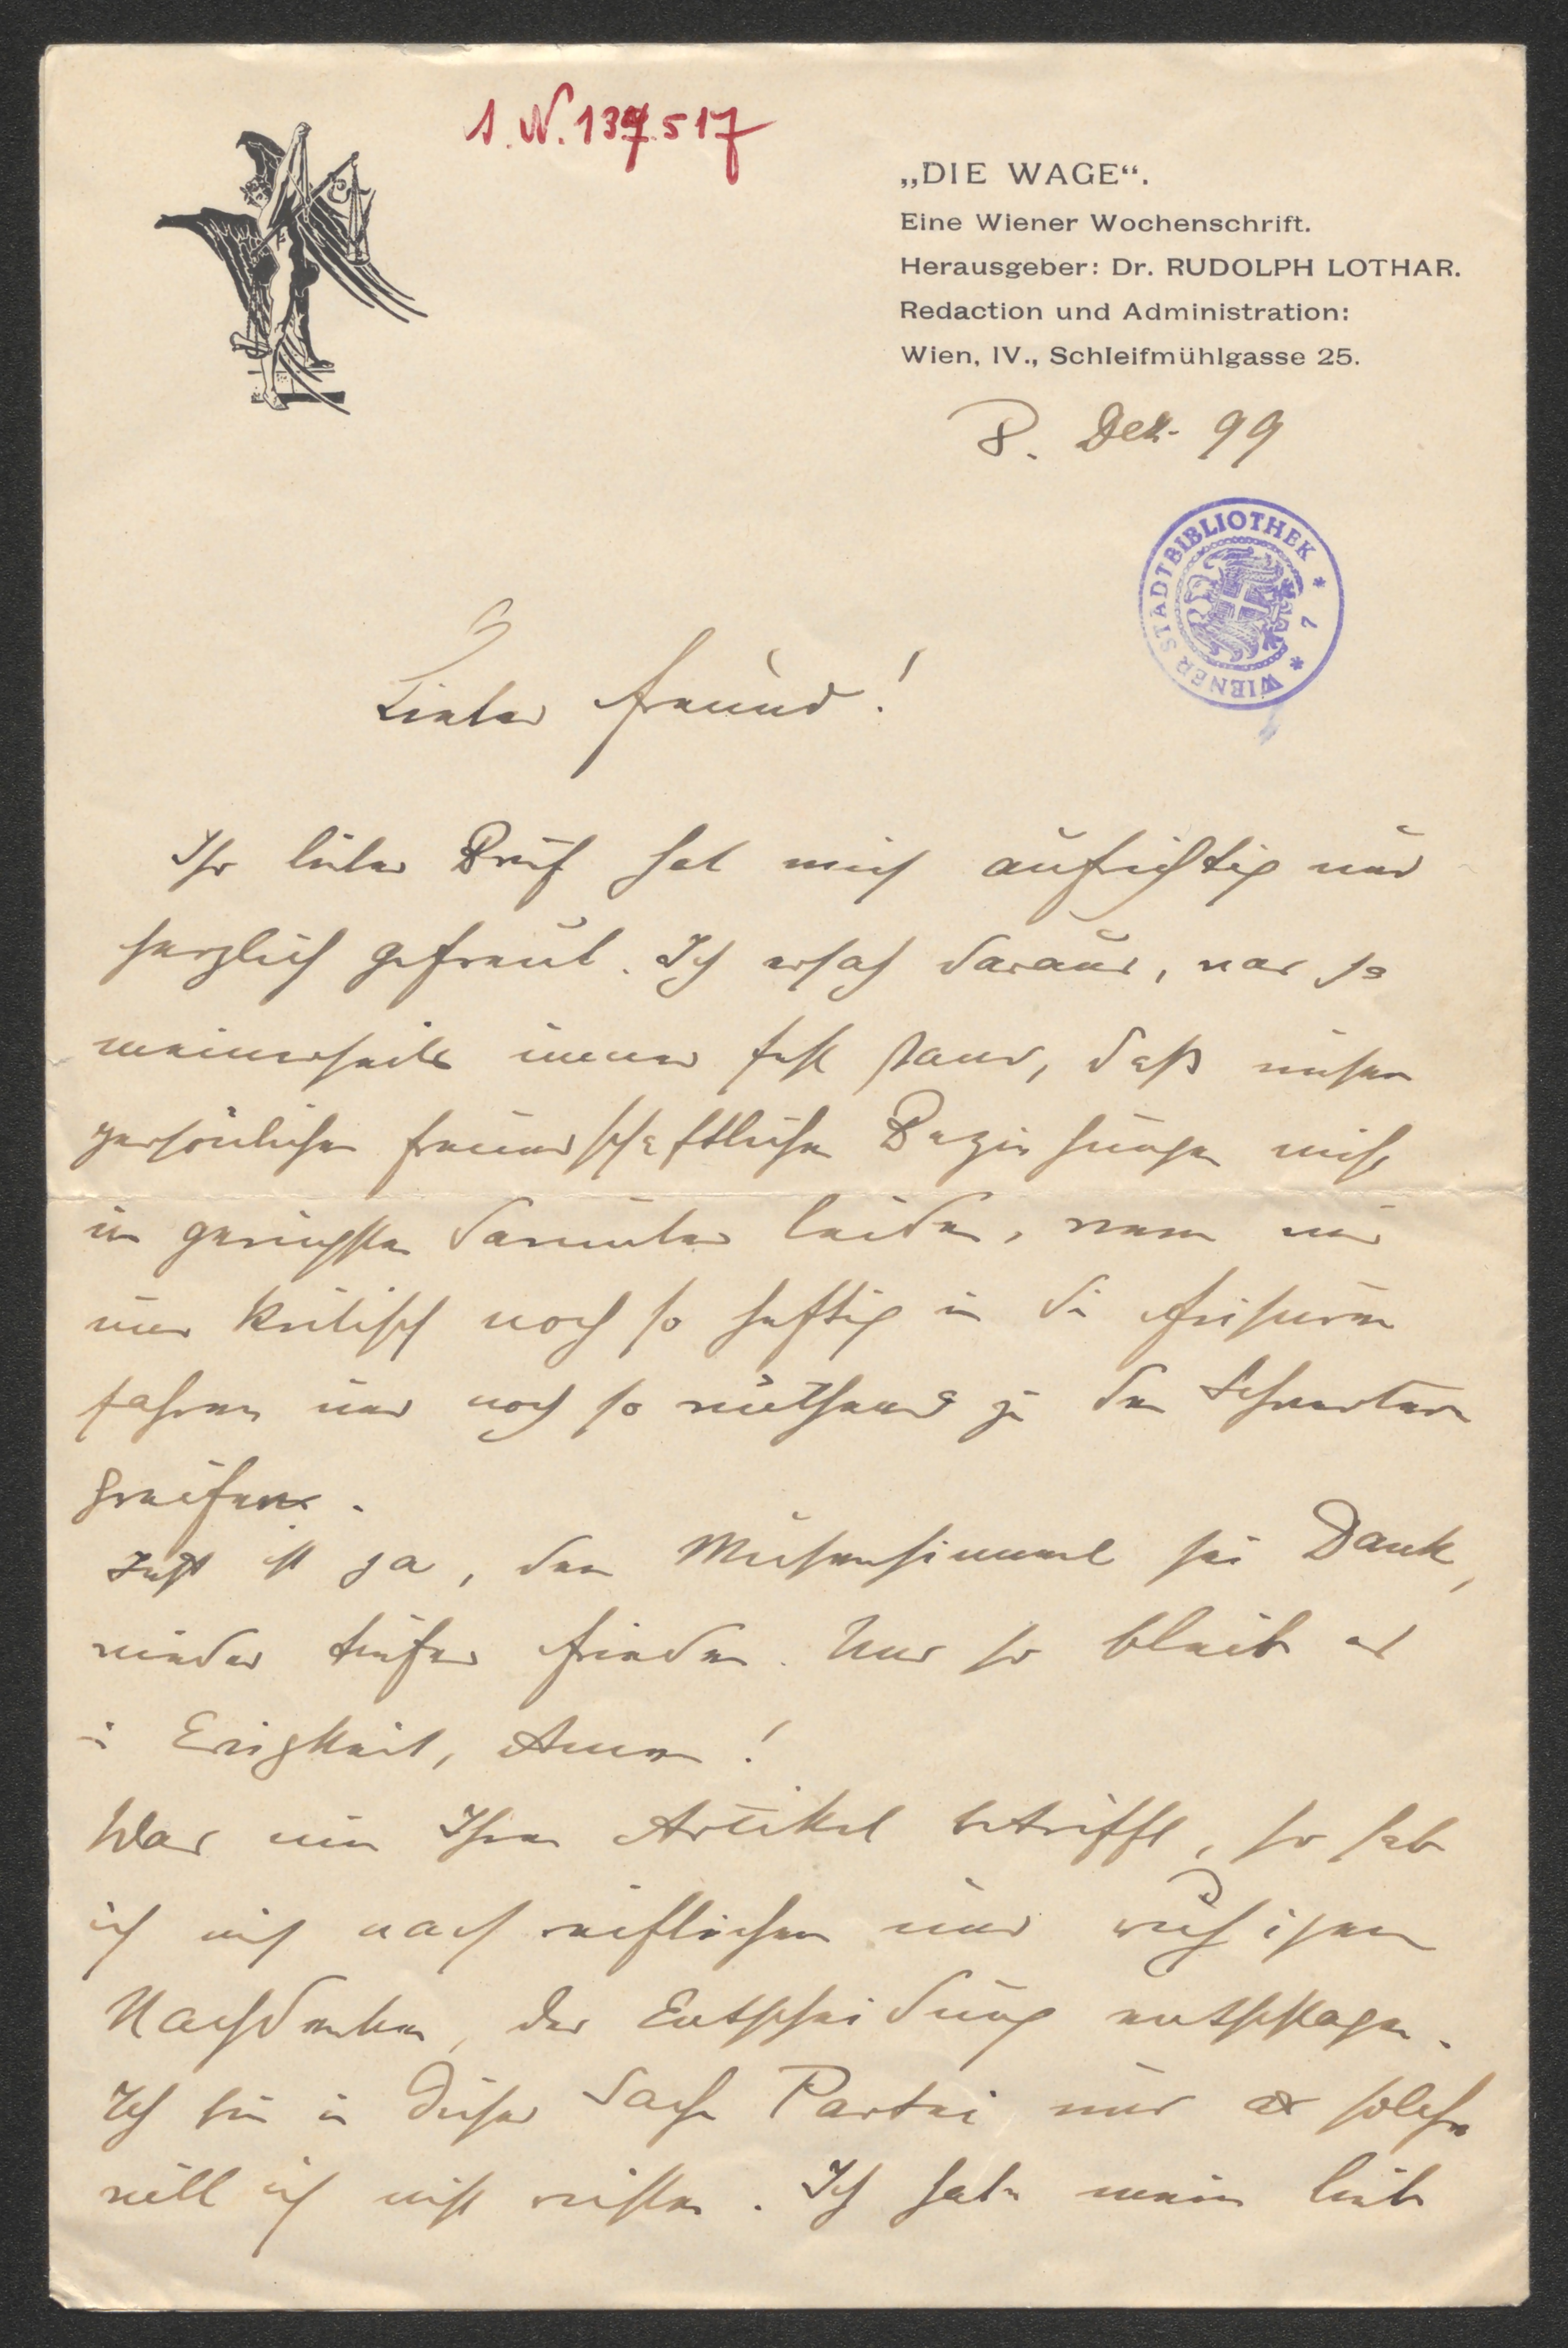 I. N. 137.517
„DIE WAGE“.
Eine Wiener Wochenschrift.
Herausgeber: Dr. RUDOLPH LOTHAR.
Redaction und Administration:
Wien, IV., Schleifmühlgasse 25.
8. Dez. 99
WIENER STADTBIBLIOTHEK * 7 *
Lieber Freund!
Ihr lieber Brief hat mich aufrichtig und
herzlich gefreut. Ich ersah daraus, was ja
meinerseits immer fest stand, daß unsere
persönlichen freundschaftlichen Beziehungen nicht
im geringsten darunter leiden, wenn wir
uns kritisch noch so heftig in die Frisuren
fahren und noch so wüthend zu den Schwertern
greifen.
Jetzt ist ja, dem Musenhimmel sei Dank,
wieder tiefer Frieden. Und so bleib es
in Ewigkeit, Amen!
Was nun Ihren Artikel betrifft, so hab
ich mich nach reiflichem und ruhigem
Nachdenken, der Entscheidung entschlagen.
Ich bin in dieser Sache Partei und als solche
will ich nicht richten. Ich habe meine liebe